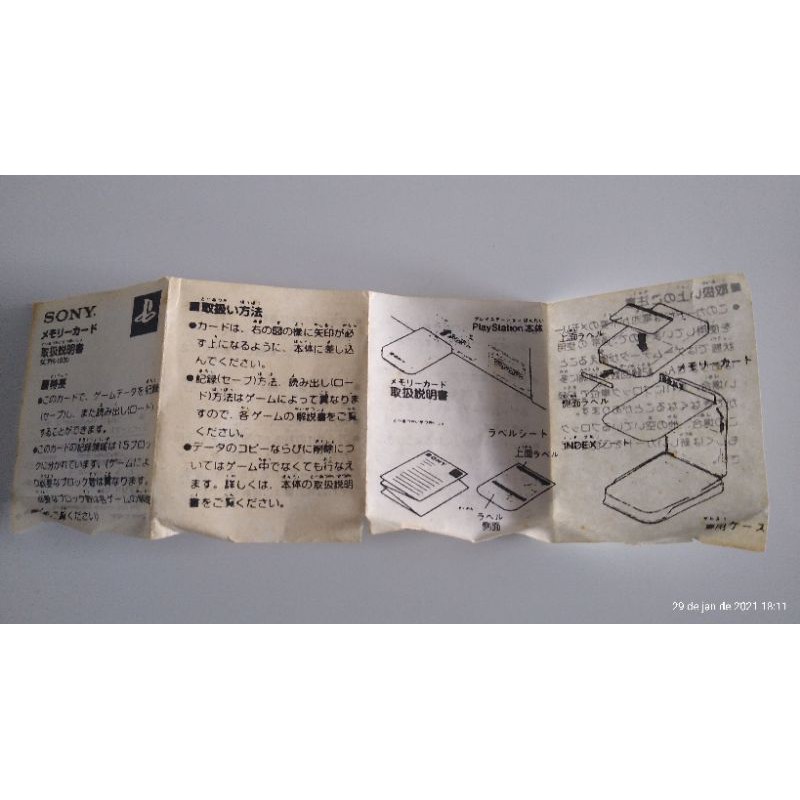 SONY
メモリーカード
取扱説明書
■特長
●このカードで、ゲームデータを記録
(セーブ)し、また読み出し(ロード)
することができます。
●このカードの記録領域は15ブロッ
クに分かれています。(ゲームによ
り必要なブロック数は異なります。
をご覧ください)
■取扱い方法
●カードは、右の図の様に矢印が必
ず上になるように、本体に差し込
んでください。
●記録(セーブ)方法、読み出し(ロー
ド)方法はゲームによって異なりま
すので、各ゲームの解説書をご覧
ください。
●データのコピーならびに削除につ
いてはゲーム中でなくても行なえ
ます。詳しくは、本体の取扱説明
書をご覧ください。
プレイステーションほんたい
PlayStation本体
メモリーカード
取扱説明書
ラベルシート
上面ラベル
SONY
ラベル
側面
上面ラベル
メモリーカード
SONY
側面ラベル
INDEXシート
専用ケース
29 de jan de 2021 18:11